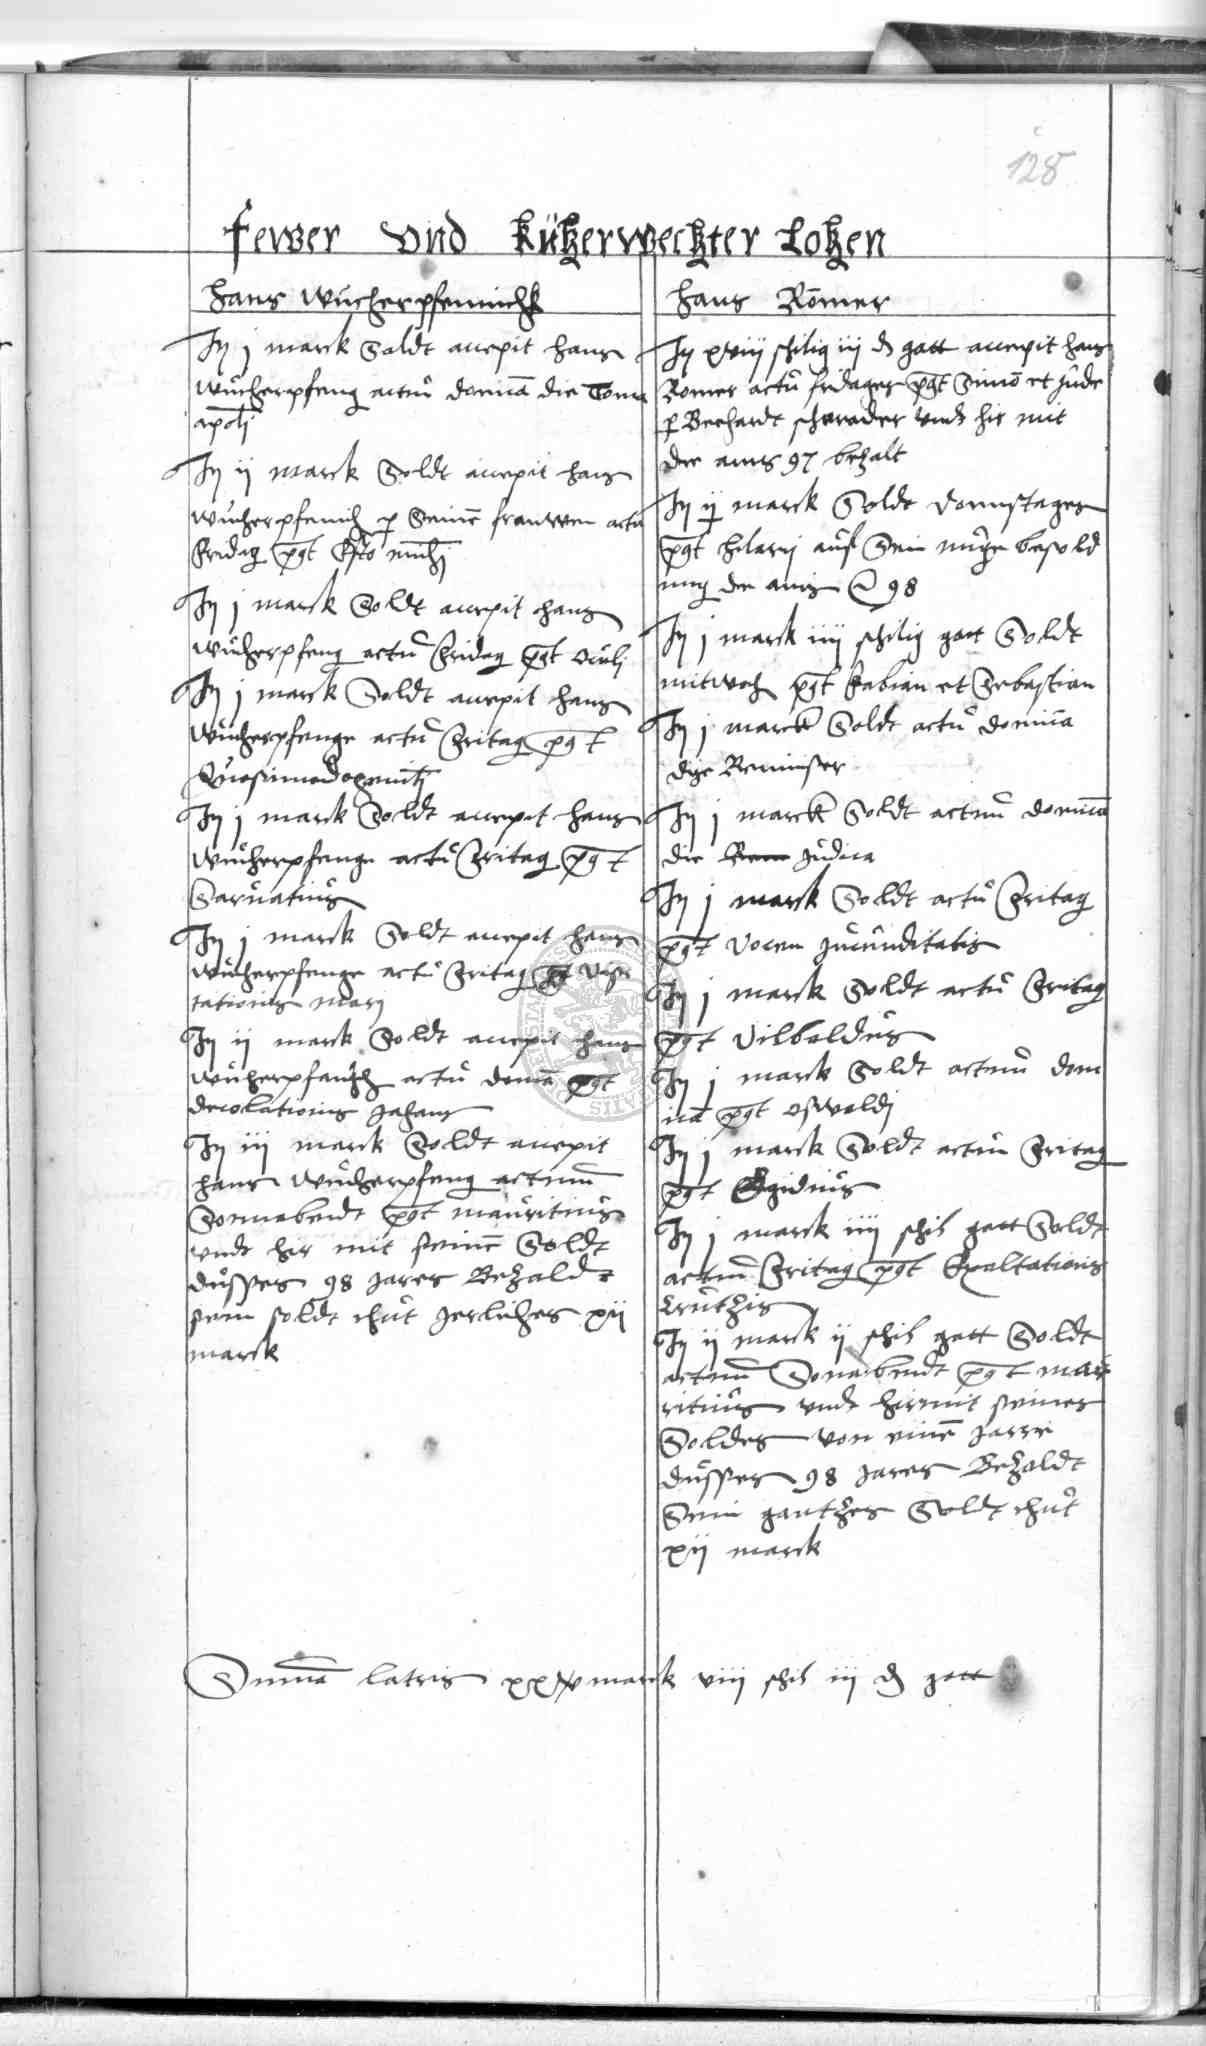 128
Fewer vnd Kützerwechter Lohen
Hans Wucherpfennichk
It j marck Soldt accepit Hans
Wucherpfeng actu dominica die Tome
apostoli
It ij marck Soldt accepit Hans
Wucherpfenich p Seine frauwen actu
Fridag post Esto michi
It j marck Soldt accepit Hans
Wucherpfeng actu Fridag post Oculi
It j marck Soldt accepit Hans
Wucherpfenge actu Fritag post
Quasimodogeniti
It j marck Soldt accepit Hans
Wucherpfenge actu Fritag post
Saruatius
It j marck Soldt accepit Hans
Wucherpfenge actu Fritag post Visi
tationis Marj
It ij marck Soldt accepit Hans
Wucherpfenich actu domca post
decolationis Johans
It iij marck Soldt accepit
Hans Wucherpfeng actum
Sonnabendt post Mauritius
vndt hir mit seine Soldt
dusses 98 Jares Bezald
sein soldt thut Jerliches xij
marck
Hans Römer
It xviij schilig iij d gott accepit Hans
Romer actu fridages post Simo et Jude
p Berhardt Schrader vndt hir mit
de anno 97 bezalt
It ij marck Soldt donnstages
post Hilarij auf Sein besold
ung de anno 98
It j marck iiij schilig gott Soldt
mitwoch post Fabian et Sebastian
It j marck Soldt actu dominica
die Reminiser
It j marck Soldt actum dominica
die Rem Judica
It j marck Soldt actu Fritag
post Vocem Jucunditatis
It j marck Soldt actu Fritag
post Vilbaldus
It j marck Soldt actum dom
inca post Oswaldj
It j marck Soldt actu Fritag
post Egidius
It j marck iiij schil gott Soldt
actum Fritag post Exaltationis
Crutzis
It ij marck ij schil gott Soldt
actum Sonabendt post Mau
ritius vndt hirmit seines
Soldes von eine Jarre
dusses 98 Jares Bezaldt
Sein gantzes Soldt thut
xij marck
Summa latris xxiv marck viij schil iij d gott